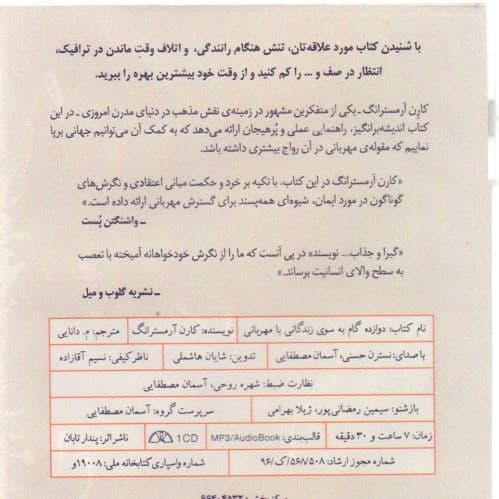 با شنیدن کتاب مورد علاقه‌تان، تنش هنگام رانندگی، و اتلاف وقتِ ماندن در ترافیک،
انتظار در صف و ... را کم کنید و از وقت خود بیشترین بهره را ببرید.
کارِن آرمسترانگ ـ یکی از متفکرین مشهور در زمینه‌ی نقش مذهب در دنیای مدرن امروزی ـ در این
کتاب اندیشه‌برانگیز، راهنمایی عملی و پُرهیجان ارائه می‌دهد که به کمک آن می‌توانیم جهانی برپا
نماییم که مقوله‌ی مهربانی در آن رواج بیشتری داشته باشد.
«کارن آرمسترانگ در این کتاب، با تکیه بر خرد و حکمت مبانی اعتقادی و نگرش‌های
گوناگون در مورد ایمان، شیوه‌ای همه‌پسند برای گسترش مهربانی ارائه داده است.»
ـ واشنگتن پُست
«گیرا و جذاب... نویسنده در پی آنست که ما را از نگرش خودخواهانه آمیخته با تعصب
به سطح والای انسانیت برساند.»
ـ نشریه گلوب و میل
نام کتاب: دوازده گام به سوی زندگانی با مهربانی نویسنده: کارن آرمسترانگ مترجم: م. دانایی
با صدای: نسترن حسنی، آسمان مصطفایی تدوین: شایان هاشملی ناظر کیفی: نسیم آقازاده
نظارت ضبط: شهره روحی، آسمان مصطفایی
بازشنو: سیمین رمضانی‌پور، ژیلا بهرامی سرپرست گروه: آسمان مصطفایی
زمان: ۷ ساعت و ۳۰ دقیقه قالب‌بندی: MP3/AudioBook 1CD ناشر اثر: پندار تابان
شماره مجوز ارشاد: ۵۶۸/۵۰۸/ک/۹۶ شماره واسپاری کتابخانه ملی: ۱۹۰۰۸و